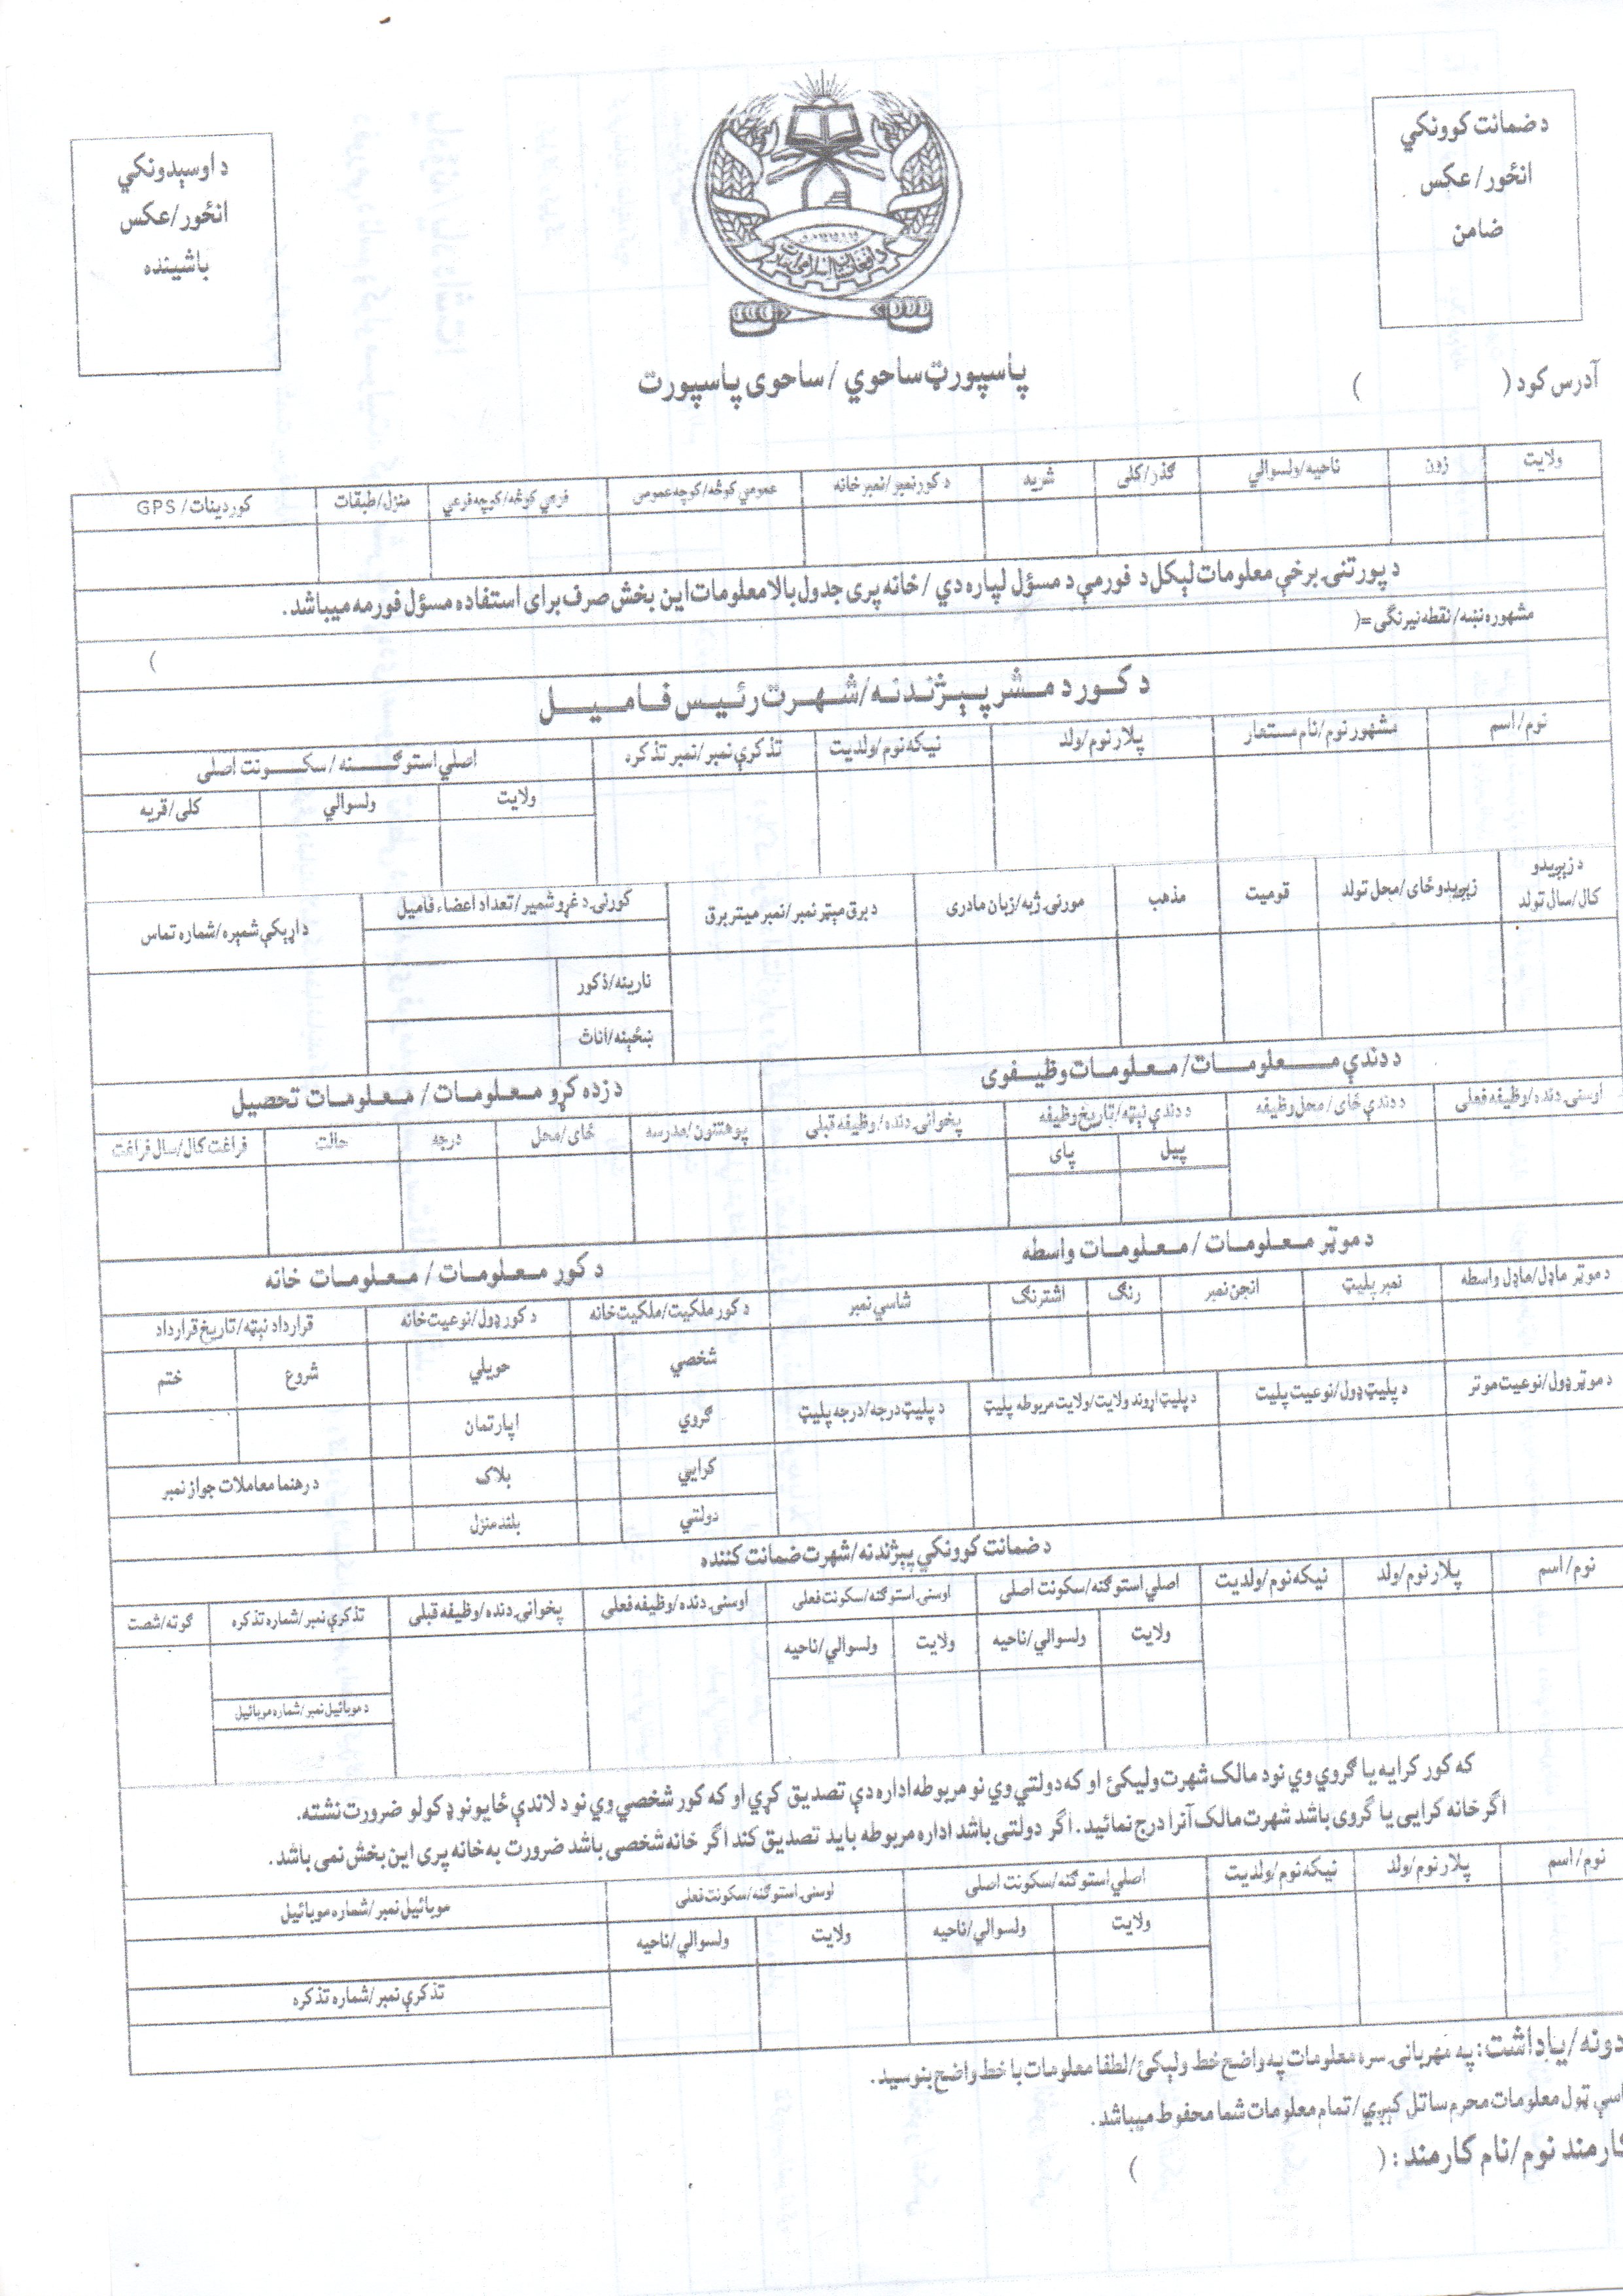 د ضمانت کوونکي
انځور/عکس
ضامن
د اوسېدونکي
انځور/عکس
باشینده
پاسپورټ ساحوي / ساحوی پاسپورت
آدرس کود (                    )
ولایت	زون	ناحیه/ولسوالي	ګذر/کلی	شرید	د کور نمبر/نمبر خانه	عمومي کوڅه/کوچه عمومی	فرعي کوڅه/کوچه فرعي	منزل/طبقات	کوردینات/GPS
د پورتنۍ برخې معلومات لېکل د فورمې د مسؤل لپاره دي / خانه پری جدول بالا معلومات این بخش صرف برای استفاده مسؤل فورمه میباشد.
مشهوره نښه/نقطه نیرنگی =(
)
د کور د مشر پېژندنه/شهرت رئیس فامیل
نوم/اسم	مشهور نوم/نام مستعار	پلار نوم/ولد	نیکه نوم/ولدیت	تذکرې نمبر/نمبر تذکره	اصلي استوګنه/سکونت اصلی
ولایت	ولسوالي	کلی/قریه
د زېږیدو
کال/سال تولد	زېږیدو ځای/محل تولد	قومیت	مذهب	مورنۍ ژبه/زبان مادری	د برق مېټر نمبر/نمبر میتر برق	کورنۍ د غړو شمېر/تعداد اعضاء فامیل	د اړېکې شمېره/شماره تماس
نارینه/ذکور
ښځېنه/اناث
د دندې معلومات/معلومات وظیفوی	د زده کړو معلومات/معلومات تحصیل
اوسنۍ دنده/وظیفه فعلی	د دندې ځای/محل وظیفه	د دندې نېټه/تاریخ وظیفه	پخوانۍ دنده/وظیفه قبلی	پوهنتون/مدرسه	ځای/محل	درجه	حالت	فراغت کال/سال فراغت
پیل	پای
د موټر معلومات/معلومات واسطه	د کور معلومات/معلومات خانه
د موټر ماډل/ماډل واسطه	نمبر پلیټ	انجن نمبر	رنګ	اشترنګ	شاسي نمبر	د کور ملکیت/ملکیت خانه	د کور ډول/نوعیت خانه	قرارداد نېټه/تاریخ قرارداد
شخصي	حویلي	شروع	ختم
د موټر ډول/نوعیت موتر	د پلیټ ډول/نوعیت پلیت	د پلیټ اړوند ولایت/ولایت مربوطه پلیټ	د پلیټ درجه/درجه پلیټ	ګروي	اپارتمان
کرایي	بلاک	د رهنما معاملات جواز نمبر
دولتي	بلند منزل
د ضمانت کوونکي پېژندنه/شهرت ضمانت کننده
نوم/اسم	پلار نوم/ولد	نیکه نوم/ولدیت	اصلي استوګنه/سکونت اصلی	اوسنۍ استوګنه/سکونت فعلی	اوسنۍ دنده/وظیفه فعلی	پخوانۍ دنده/وظیفه قبلی	تذکرې نمبر/شماره تذکره	ګوته/شصت
ولایت	ولسوالي/ناحیه	ولایت	ولسوالي/ناحیه
د موبائیل نمبر/شماره موبائیل
که کور کرایه یا ګروي وي نو د مالک شهرت ولیکئ او که دولتي وي نو مربوطه اداره دې تصدیق کړي او که کور شخصي وي نو د لاندې ځایونو ډکولو ضرورت نشته.
اگر خانه کرایی یا گروی باشد شهرت مالک آنرا درج نمائید. اگر دولتی باشد اداره مربوطه باید تصدیق کند اگر خانه شخصی باشد ضرورت به خانه پری این بخش نمی باشد.
نوم/اسم	پلار نوم/ولد	نیکه نوم/ولدیت	اصلي استوګنه/سکونت اصلی	اوسنۍ استوګنه/سکونت فعلی	موبائیل نمبر/شماره موبائیل
ولایت	ولسوالي/ناحیه	ولایت	ولسوالي/ناحیه
تذکرې نمبر/شماره تذکره
دونه/یاداشت: په مهربانۍ سره معلومات په واضح خط ولېکئ/لطفا معلومات با خط واضح بنوسید.
ټول معلومات محرم ساتل کېږي/تمام معلومات شما محفوط میباشد.
کارمند نوم/نام کارمند: (                    )